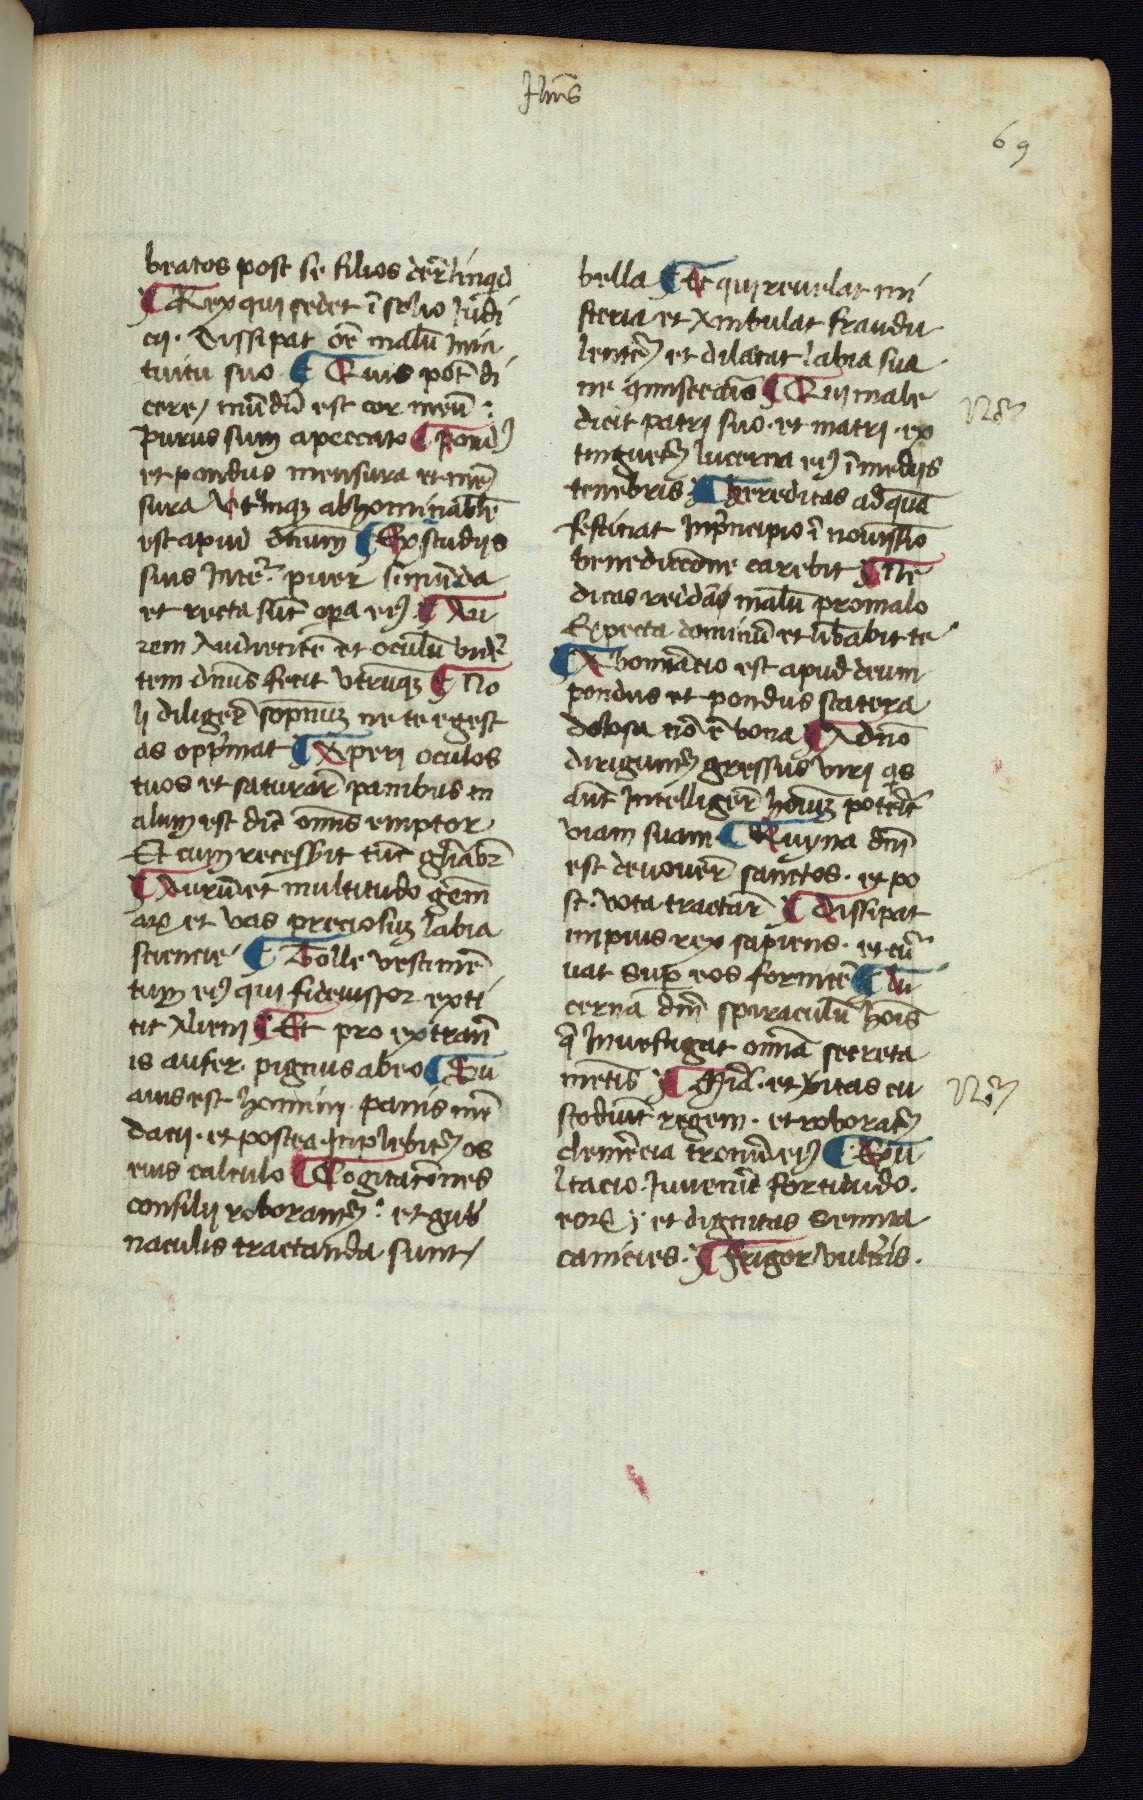 Jhūs
69
beatos post se filios der̄linqꝫ
¶ Rex qui sedet ī solio iudi
cij · Dissipat oē malū intu
ituitu suo ¶ Quis pōt di
cere / mūdū est cor meū :
purus sum a peccato ¶ pondꝰ
et pondus mensura et mē
sura Vtrūqꝫ abhominabile
est apud dnūm ¶ Ex studijs
suis inte͛ · puer si mūda
et recta sūt opa eiꝰ ¶ Au
rem Audientē et oculū vidē
tem dnūs fecit vtrūqꝫ ¶ No
li diliger̄ sopnūꝫ ne te egest
as opp̄mat ¶ Aperi oculos
tuos et saturar̄ panibus m
alum est dic̄ omīs emptor
Et cum recesserit tūc gl̄iabr̄
¶ Aurū et multitudo gem̄
arꝝ et vas preciosuꝫ labia
sciencie ¶ Tolle vestimē
tum eiꝰ qui fideiussor exti
tit Alieni ¶ Et pro extran̄
is aufer · pignus ab eo ¶ Su
auis est homini · panis mē
dacij · et postea implebitꝭ os
eius calculo ¶ Cogitacōnes
consilij roboramꝭ : et gub̄
naculis tractanda sunt /
bella ¶ Et qui reuelat mi
steria et Ambulat fraudu
lentē et dilatat labia sua
ne qmiscearis ¶ Qui male
dicit patri suo · et matri · ex
tinguetꝭ lucerna eiꝰ ī medijs
tenebris ¶ Hereditas ad quā
festinat inp̄ncipio ī nouissīo
benediccōne carebit ¶ Ne
dicas reddā malū pro malo
Expecta dominū et lib̄abit te
¶ Abomīacio est apud deum
pondus et pondus statera
dolosa nō ē bona ¶ A dnō
dirigunꝭ gressus viri qis
aūt intelliger̄ hoīuꝫ potēit
viam suam ¶ Ruyna dnī
est deuouer̄ sanctos · et po
st · vota tractar̄ ¶ Dissipat
impius rex sapiens · et cūr
uat sup eos fornicē ¶ Lu
cerna dnī spiraculū hoīs
q̄ Inuestigat omīa secreta
mētis ¶ Miā · et ꝟitas cu
stodiūt regem · et roboratꝭ
clemēcia tronū eiꝰ ¶ Exu
ltacio · Iuuenū fortitudo ·
eorꝝ et dignitas senum
canicies · ¶ Frigor vuln̄is ·